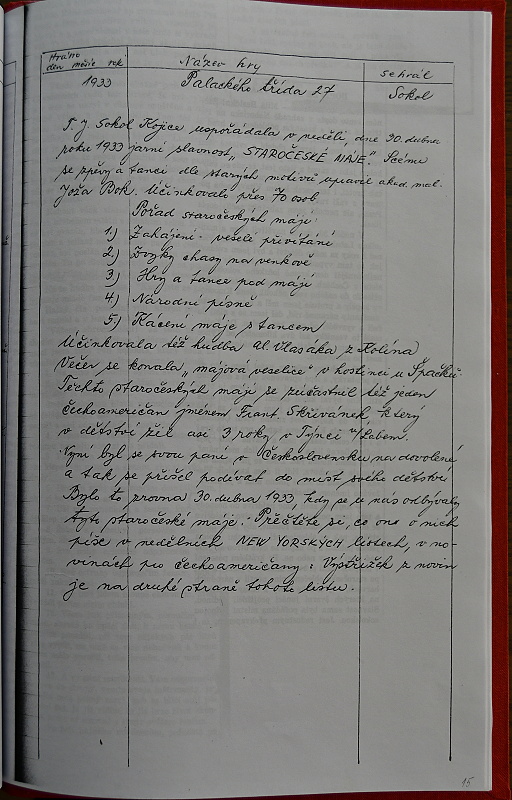 Hráno
den měsíc rok
Název hry
sehrál
1933
Palackého třída 27
Sokol
T. J. Sokol Kojice uspořádala v neděli, dne 30. dubna
roku 1933 jarní slavnost „STAROČESKÉ MÁJE". Scénu
se zpěvy a tanci dle starých motivů upravil akad. mal.
Joža Bok. Účinkovalo přes 70 osob
Pořad staročeských májí:
1.) Zahájení - veselé přivítání
2.) Zvyky chasy na venkově
3) Hry a tance pod májí
4) Národní písně
5.) Kácení máje s tancem
Účinkovala též hudba Al. Vlasáka z Kolína
Večer se konala „májová veselice" v hostinci u Špačků.
Těchto staročeských májí se zúčastnil též jeden
čechoameričan jménem Frant. Skřivánek, který
v dětství žil asi 3 roky v Týnci n/Labem.
Nyní byl se svou paní v Československu na dovolené
a tak se přišel podívat do míst svého dětství
Bylo to zrovna 30. dubna 1933, kdy se u nás odbývaly
tyto staročeské máje. Přečtěte si, co ono o nich
píše v nedělních NEW YORSKÝCH listech, v no-
vinách pro čechoameričany: Výstřižek z novin
je na druhé straně tohoto listu.
15